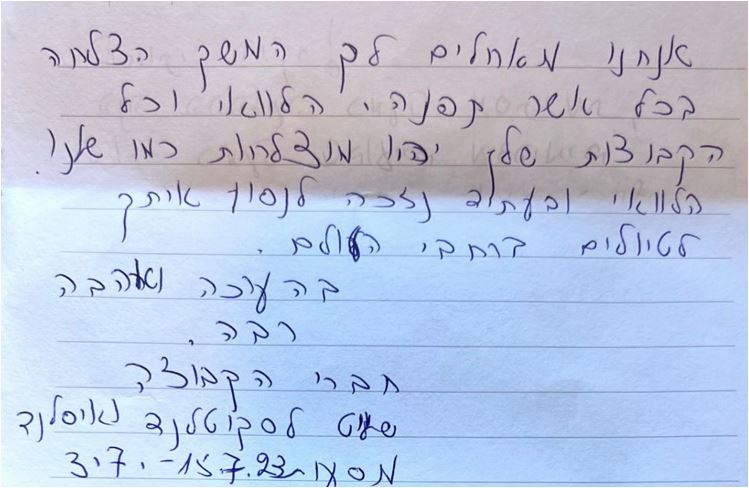 אנחנו מאחלים לך המשך הצלחה
בכל אשר תפנה . הלוואי וכל
הקבוצות שלך יהיו מוצלחות כמו שלנו.
הלוואי ובעתיד נזכה לנסוע איתך
לטיולים ברחבי העולם .
בהערכה ואהבה
רבה .
חברי הקבוצה
שייט לסקוטלנד ואיסלנד
3.7 - 15.7.23